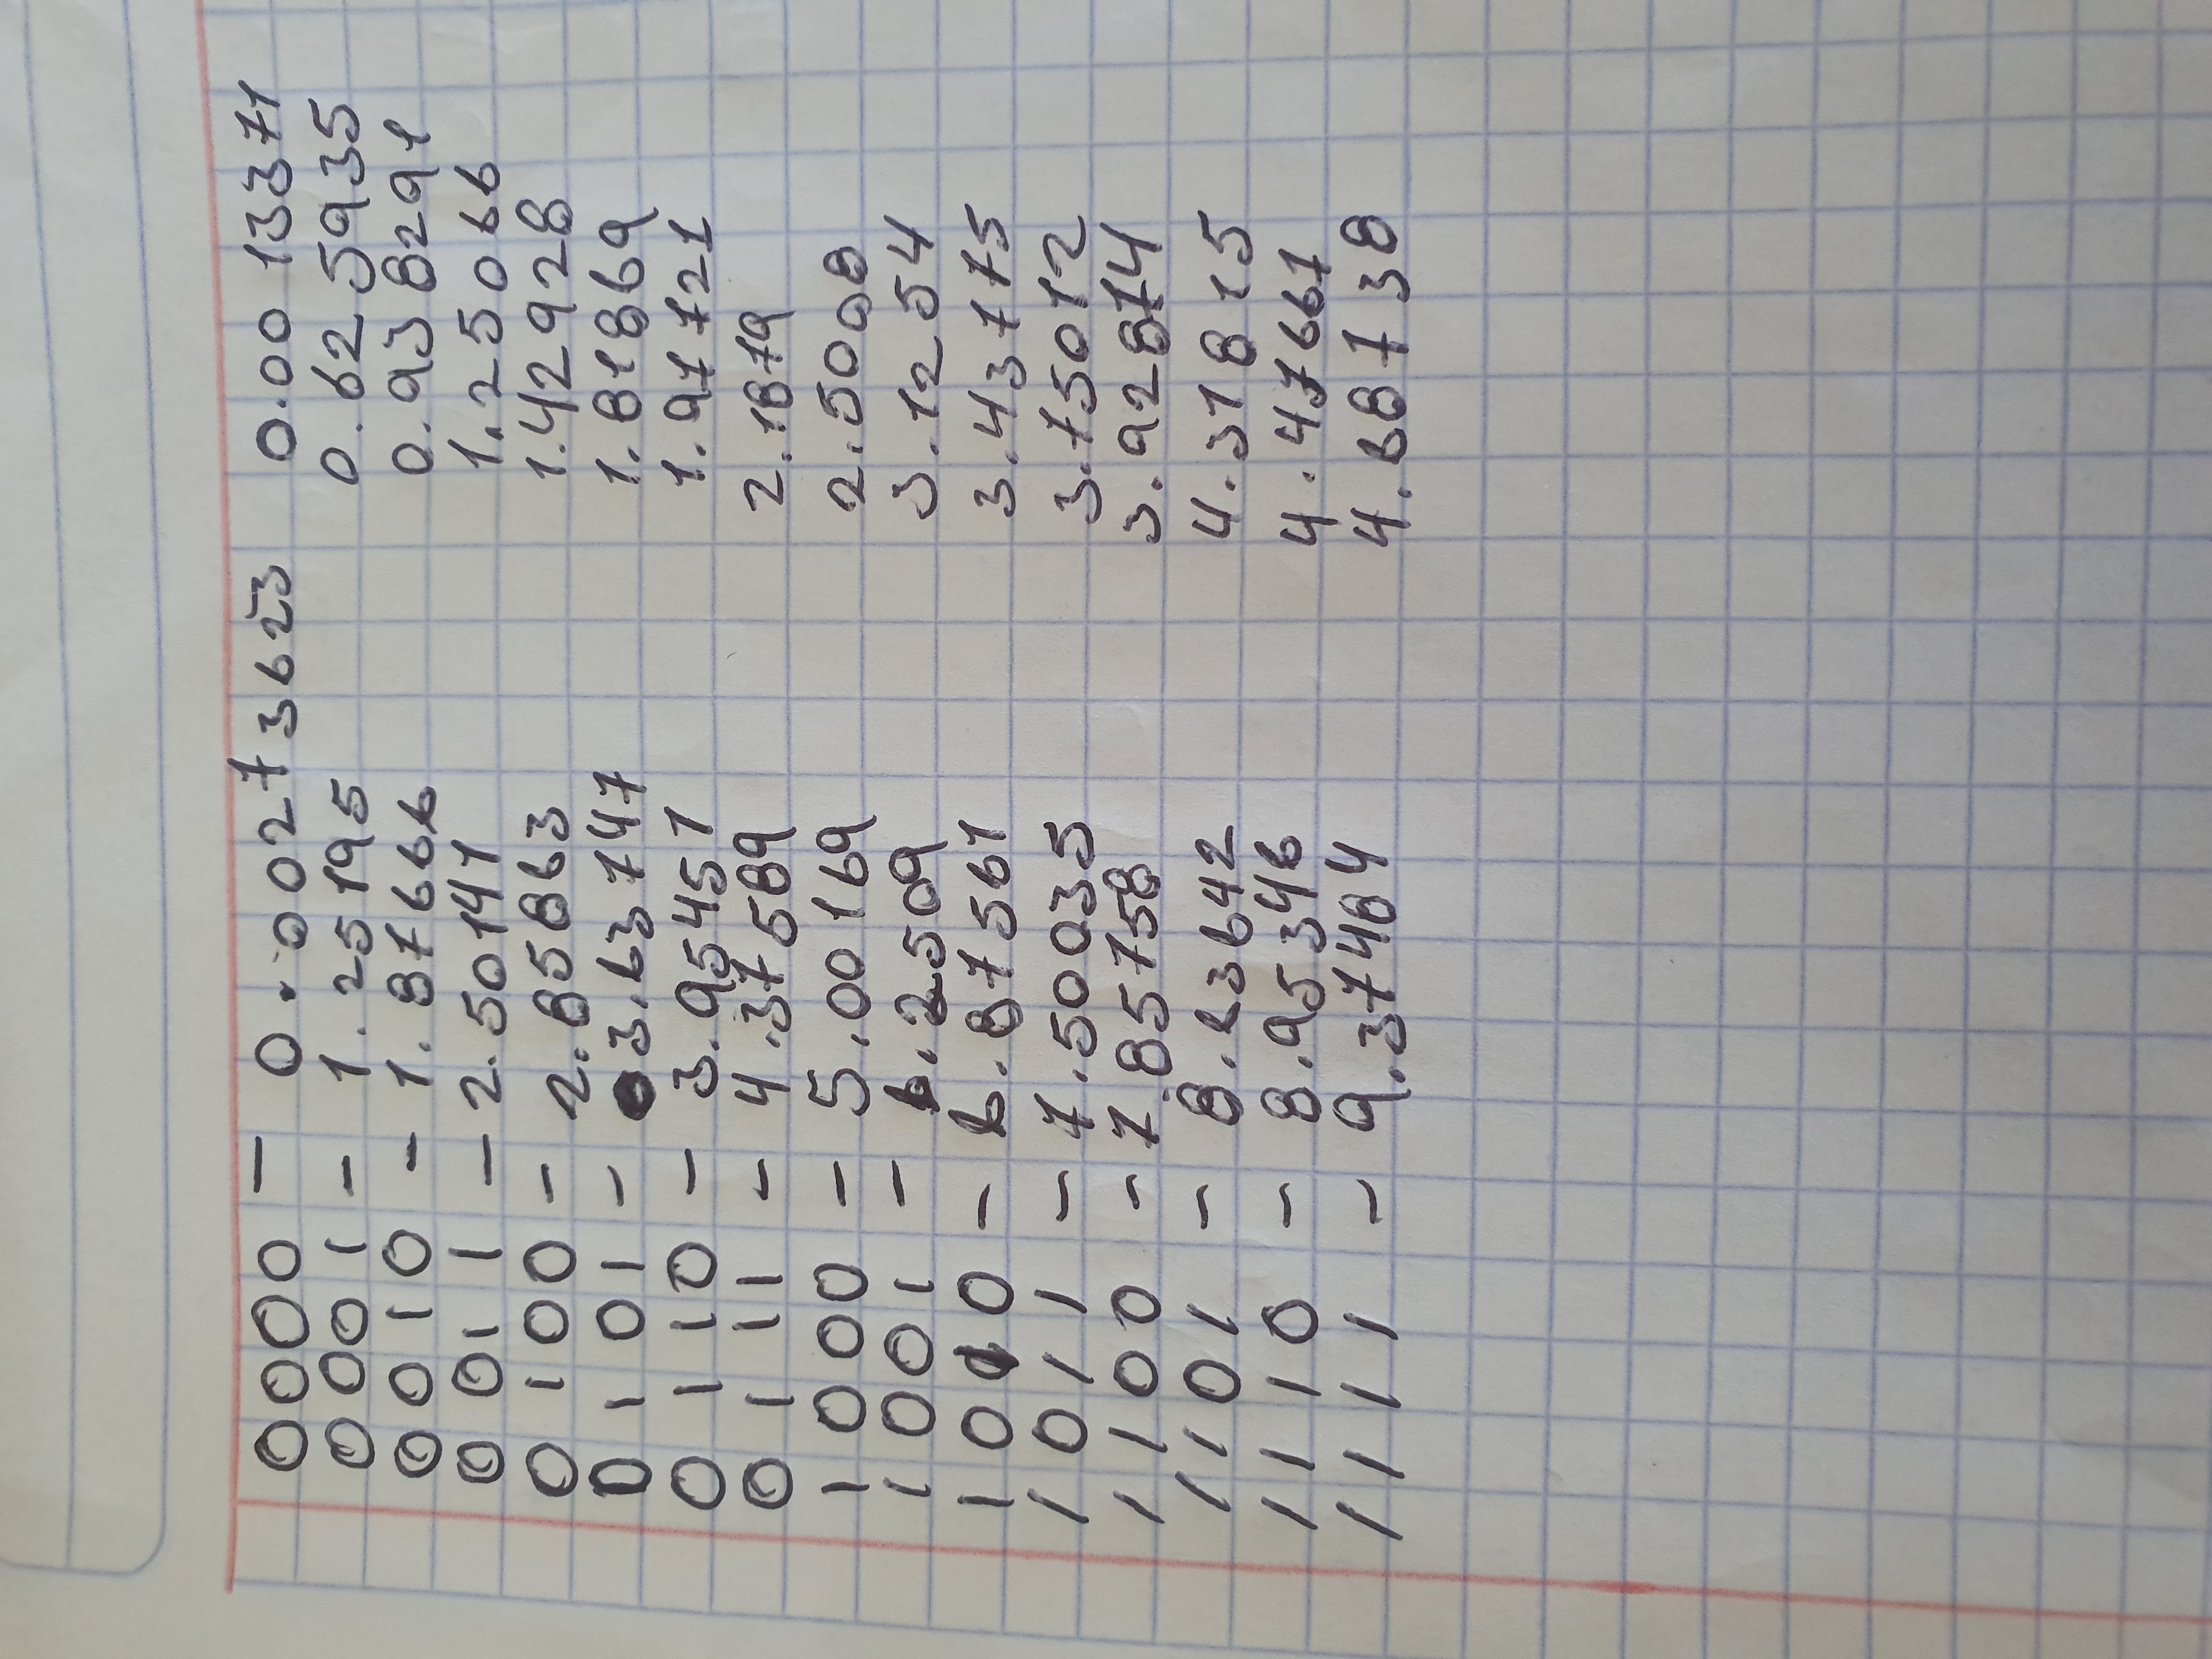 0000 - 0.00273623 0.0013371
0001 - 1.25195 0.625935
0010 - 1.87666 0.938291
0011 - 2.50141 1.25066
0100 - 2.85863 1.42928
0101 - 3.63747 1.81869
0110 - 3.95451 1.97721
0111 - 4.37589 2.1879
1000 - 5.00169 2.5008
1001 - 6.2509 3.1254
1010 - 6.87561 3.43775
1011 - 7.50035 3.75012
1100 - 7.85758 3.92874
1101 - 8.63642 4.31815
1110 - 8.95346 4.47661
1111 - 9.37484 4.68738